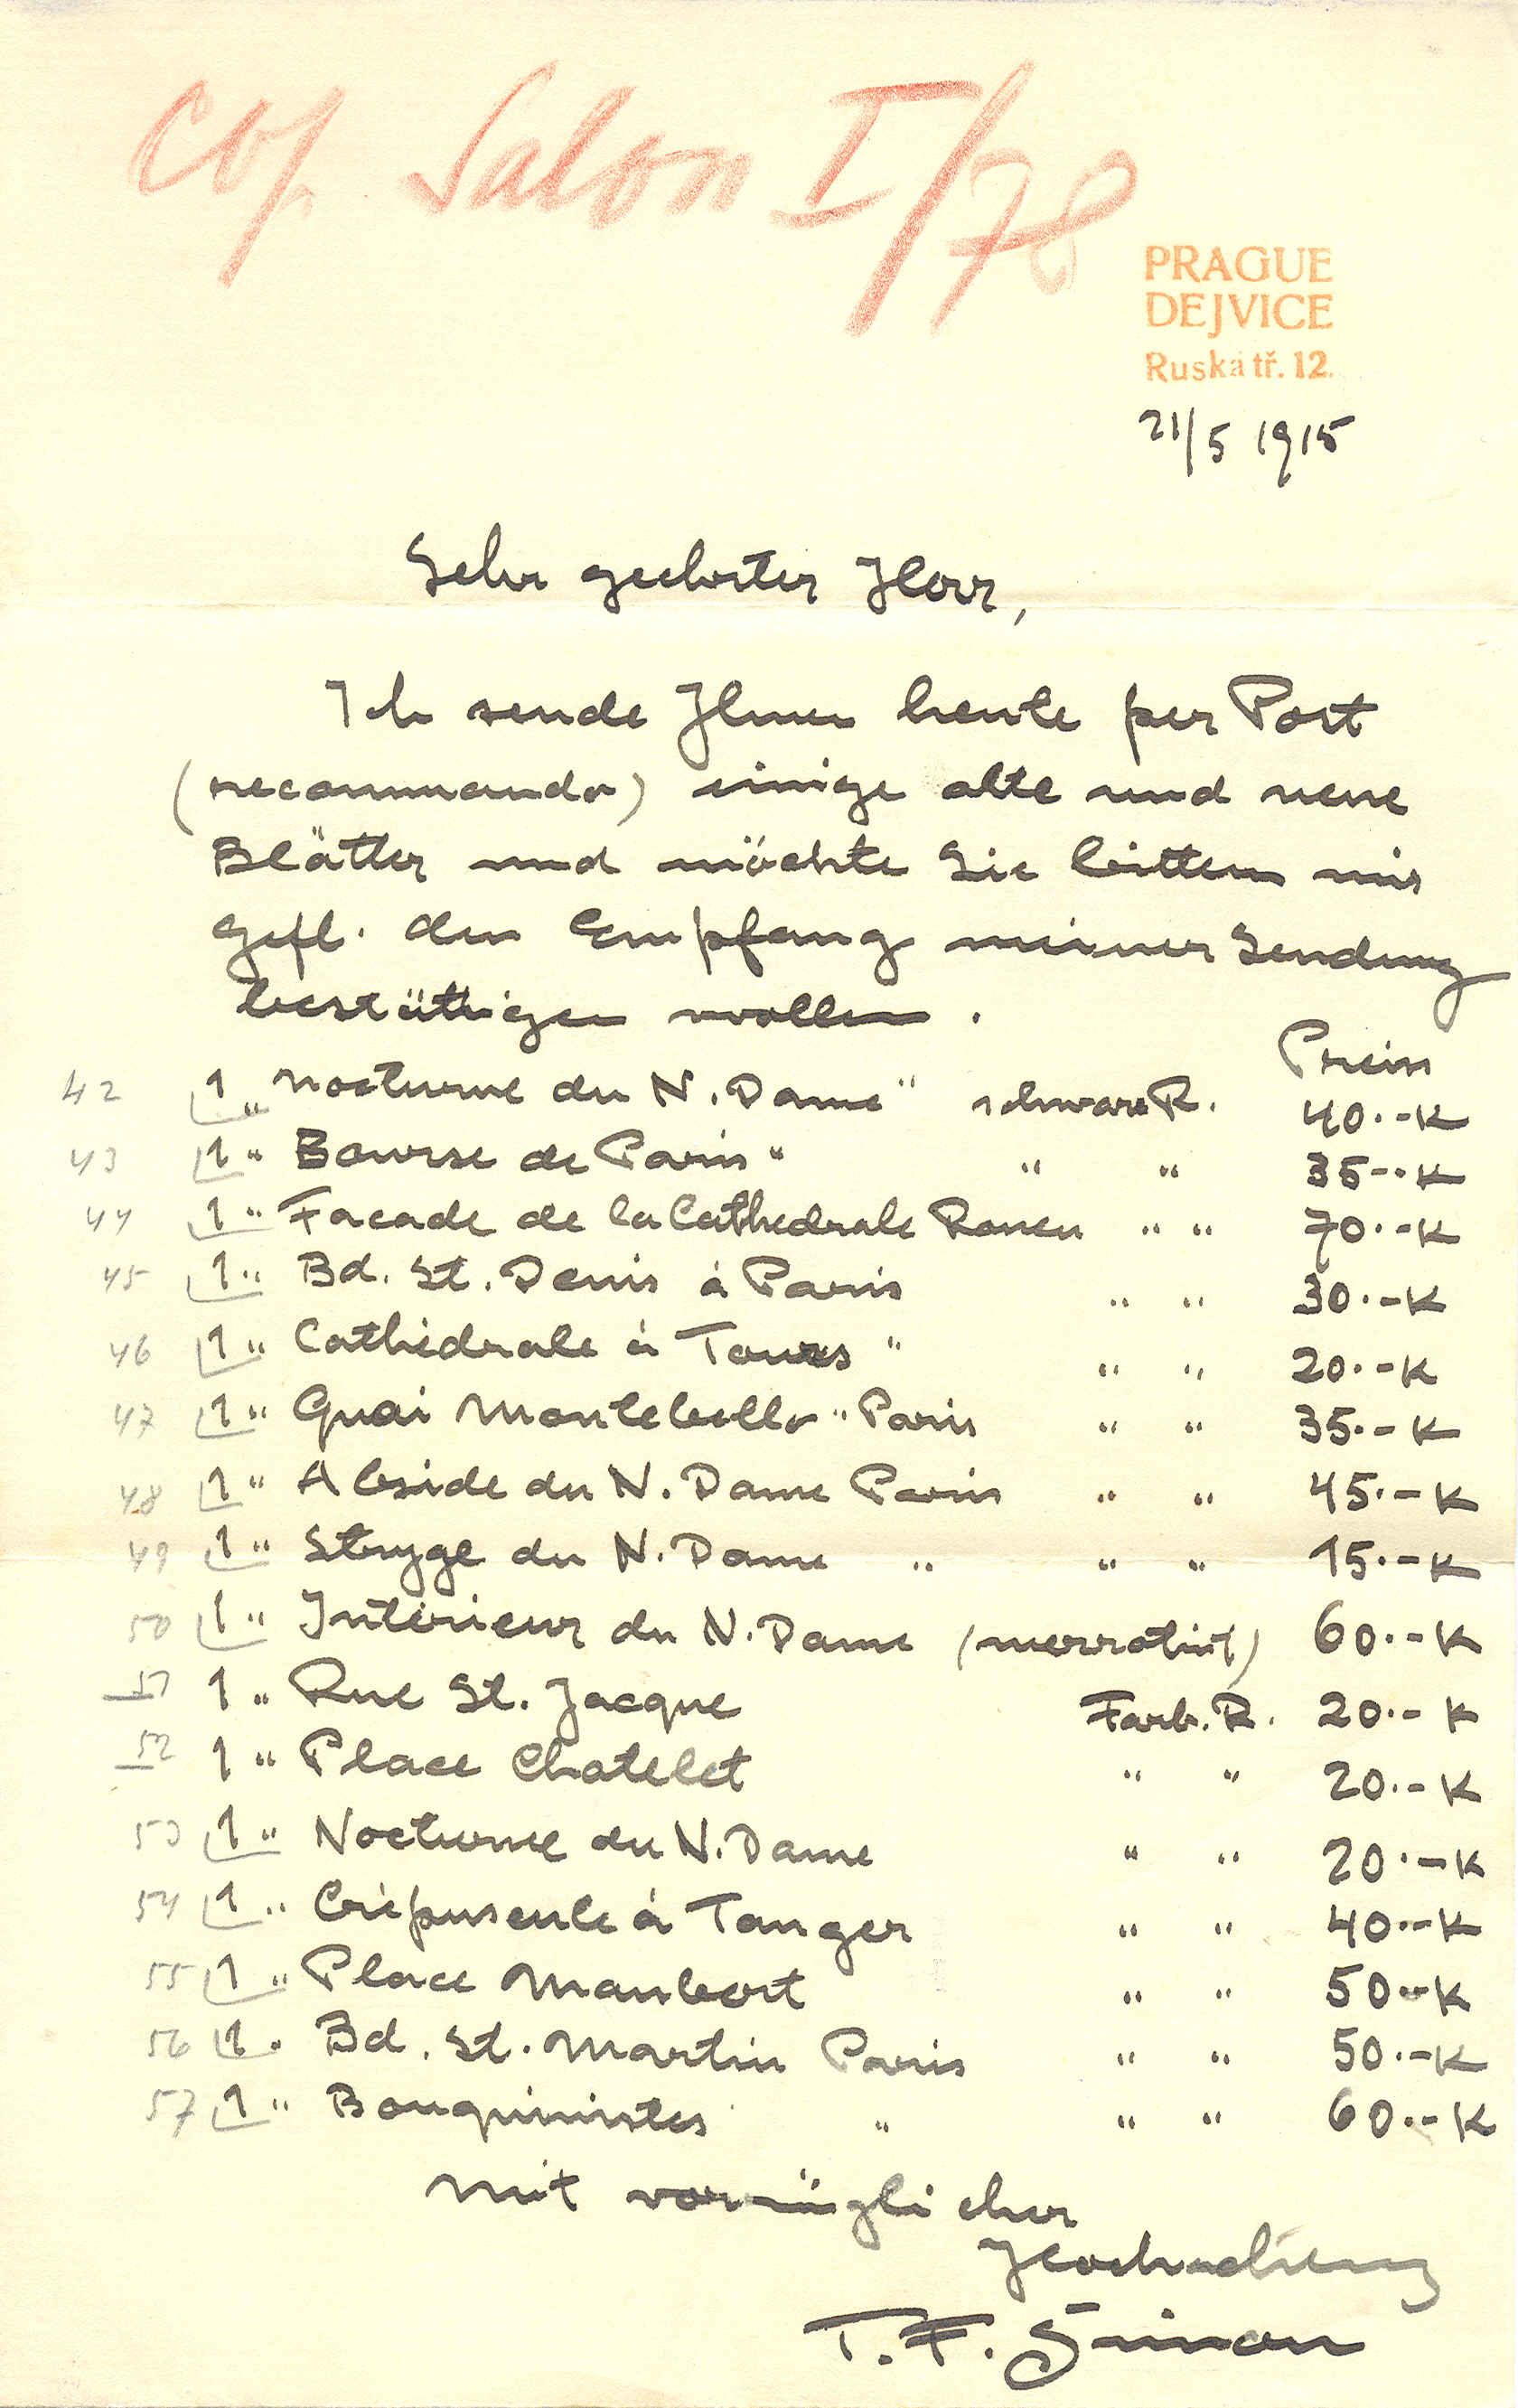 Cop. Salon I/78
PRAGUE
DEJVICE
Ruská tř. 12.
21/5 1915
Sehr geehrter Herr,
Ich sende Ihnen heute per Post
(recommando) einige alte und neue
Blätter und möchte Sie bitten mir
gefl. den Empfang meiner Sendung
bestättigen wollen.
Preis
42 1 „ Nocturne du N. Dame" schwarz R. 40.-K
43 1 " Bourse de Paris " " " 35-.K
44 1 " Facade de la Cathedrale Rouen " " 70.-K
45 1 " Bd. St. Denis à Paris " " 30.-K
46 1 " Cathédrale à Tours " " " 20.-K
47 1 " Quai Montebello " Paris " " 35.-K
48 1 " Abside du N. Dame Paris " " 45.-K
49 1 " Stryge du N. Dame " " " 15.-K
50 1 " Intérieur du N. Dame (mezzotint) 60.-K
51 1 " Rue St. Jacque Farb. R. 20.- K
52 1 " Place Chatelet " " 20.-K
53 1 " Nocturne du N. Dame " " 20.-K
54 1 " Crépuscule à Tanger " " 40.-K
55 1 " Place Maubert " " 50.-K
56 1 . Bd. St. Martin Paris " " 50.-K
57 1 " Bouquinistes " " " 60.-K
Mit vorzüglicher
Hochachtung
T. F. Šimon